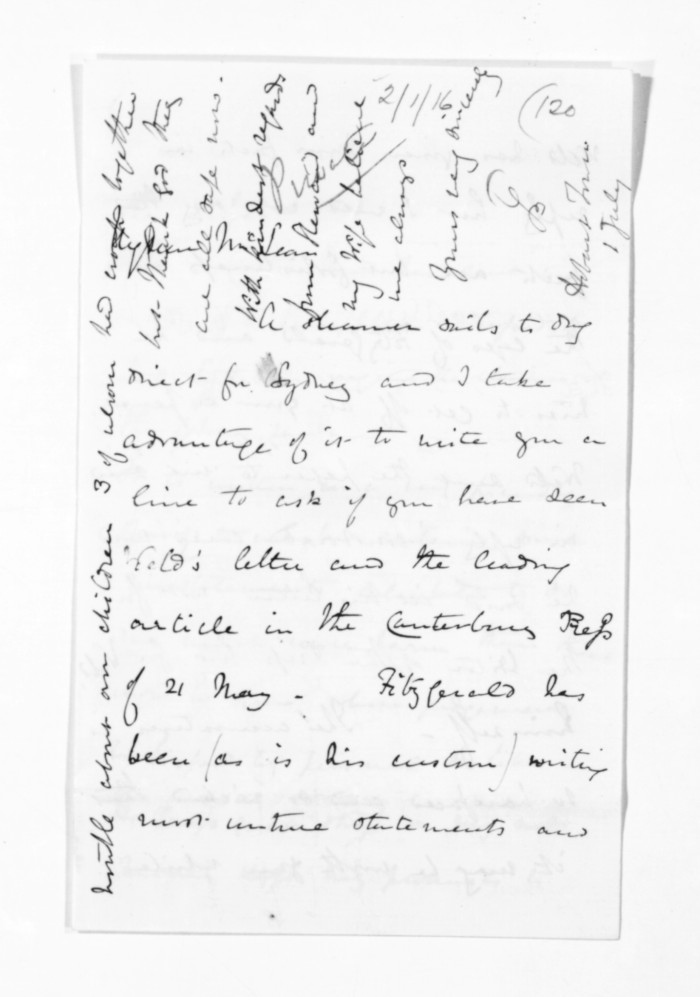 2/1/16
(120
New Plymouth
1 July
My Dear McLean
A steamer sails to day
direct for Sydney and I take
advantage of it to write you a
line to ask if you have seen
letter and the leading
article in the Canterbury Press
of 21 May - Fitzgerald has
been (as is his custom) writing
most untrue statements and
trouble about our children 3 of whom had croup together
but thank God they
are all safe now.
With kindest regards
and
my wife
me always
Yours very sincerely